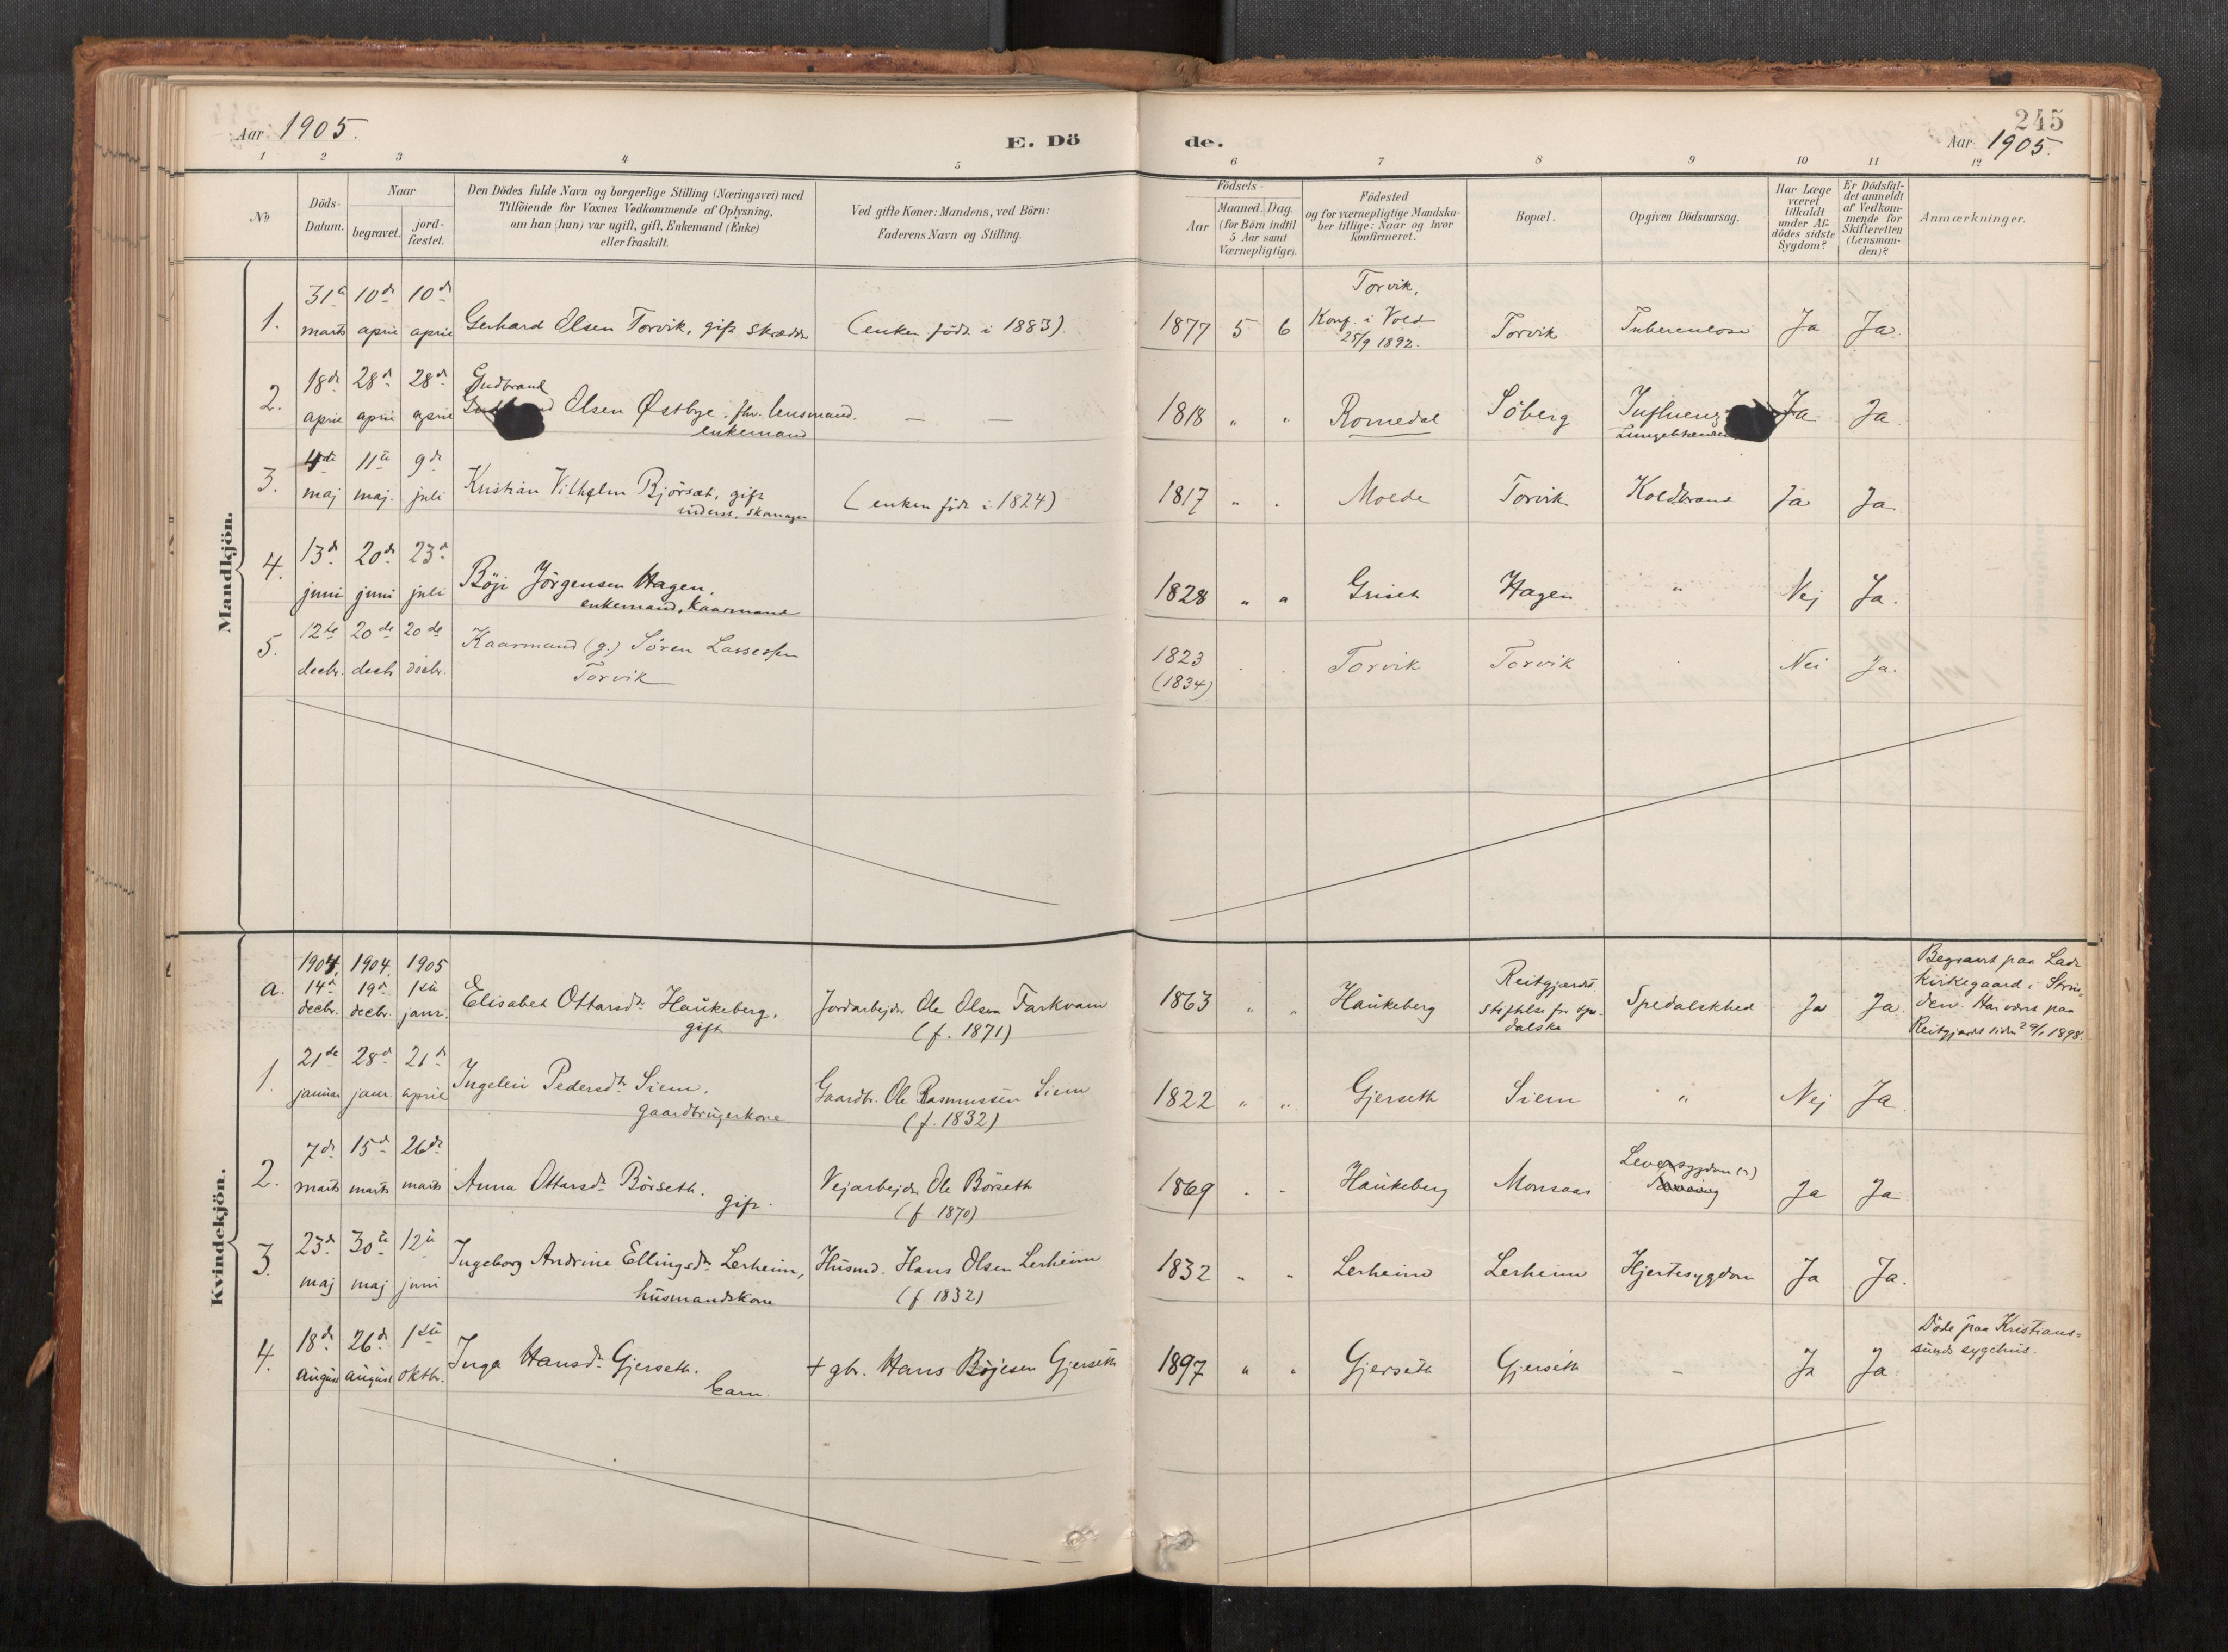 245
Aar 1905.
E. Dö
de.
Aar 1905.
1 2 3 4 5 6 7 8 9 10 11 12
No
Döds-
Datum.
Naar
begravet.
jord-
fæstet.
Den Dödes fulde Navn og borgerlige Stilling (Næringsvei) med
Tilföiende for Voxnes Vedkommende af Oplysning,
om han (hun) var ugift, gift, Enkemand (Enke)
eller fraskilt.
Ved gifte Koner: Mandens, ved Börn:
Faderens Navn og Stilling.
Födsels-
Aar
Maaned. Dag.
(for Börn indtil
5 Aar samt
Værnepligtige).
Födested
og for værnepligtige Mandska-
ber tillige: Naar og hvor
konfirmeret.
Bopæl.
Opgiven Dödsaarsag.
Har Læge
været
tilkaldt
under Af-
dödes sidste
Sygdom?
Er Dödsfal-
det anmeldt
af Vedkom-
mende for
Skifteretten
(Lensman-
den)?
Anmærkninger.
Mandkjön.
1. 31te marts 10de april 10de april Gerhard Olsen Torvik, gift skrædder (enken född i 1883). 1877 5 6 Torvik, Konf. i Vold 25/9 1892. Torvik Tuberculose Ja Ja.
2. 18de april 28de april 28de april Gudbrand Olsen Østbye. fhv. lensmand. enkemand — — 1818 " " Romedal Söberg Influenz Ja Ja
3. 4de maj 11te maj. 9de juli Kristian Vilhelm Bjórsæt, gift inderst, skomager (enken född i 1824) 1817 " " Molde Torvik Koldbrand Ja Ja.
4. 13de juni 20de juni 23de juli Böje Jörgensen Hagen, enkemand, kaarmand 1828 " " Griset Hagen " Nej Ja.
5. 12te decbr. 20de decb 20de decbr. Kaarmand (g.) Søren Lassessen Torvik 1823 (1834) Torvik Torvik Nei Ja.
Kvindekjön.
a. 1904. 14de decbr. 1904. 19de decbr. 1905 1ste janr. Elisabet Ottarsdr. Haukeberg, gift Jordarbejder Ole Olsen Farkvam (f. 1871) 1863 " " Haukeberg Reitgjærdets Stiftelse for spe- dalske Spedalskhed Ja Ja Begravet paa Lade Kirkegaard i Strin- den. Har været paa Reitgjærdet siden 29/1 1898.
1. 21de januar 28de janr 21de april Ingeleiv Pedersdtr. Siem, gaardbrugerkone. Gaardbr. Ole Rasmussen Siem (f. 1832) 1822 " " Gjerseth Siem " Nej Ja
2. 7de marts 15de marts 26de marts Anna Ottarsdr. Börseth. gift. Vejarbejder Ole Börseth (f 1870) 1869 " " Haukeberg Monsaas Leversygdom (?) Ja Ja
3. 23de maj 30te maj 12te juni Ingeborg Andrine Ellingsdr. Lerheim, husmandskone Husmd. Hans Olsen Lerheim (f. 1832) 1832 " " Lerheim Lerheim Hjertesygdom Ja Ja.
4. 18de august 26de august 1ste oktbr. Inga Hansdr. Gjerseth. barn. + gbr. Hans Böjesen Gjerseth 1897 " " Gjerseth Gjerseth — Ja Ja. Döde paa Kristians= sunds sygehus.